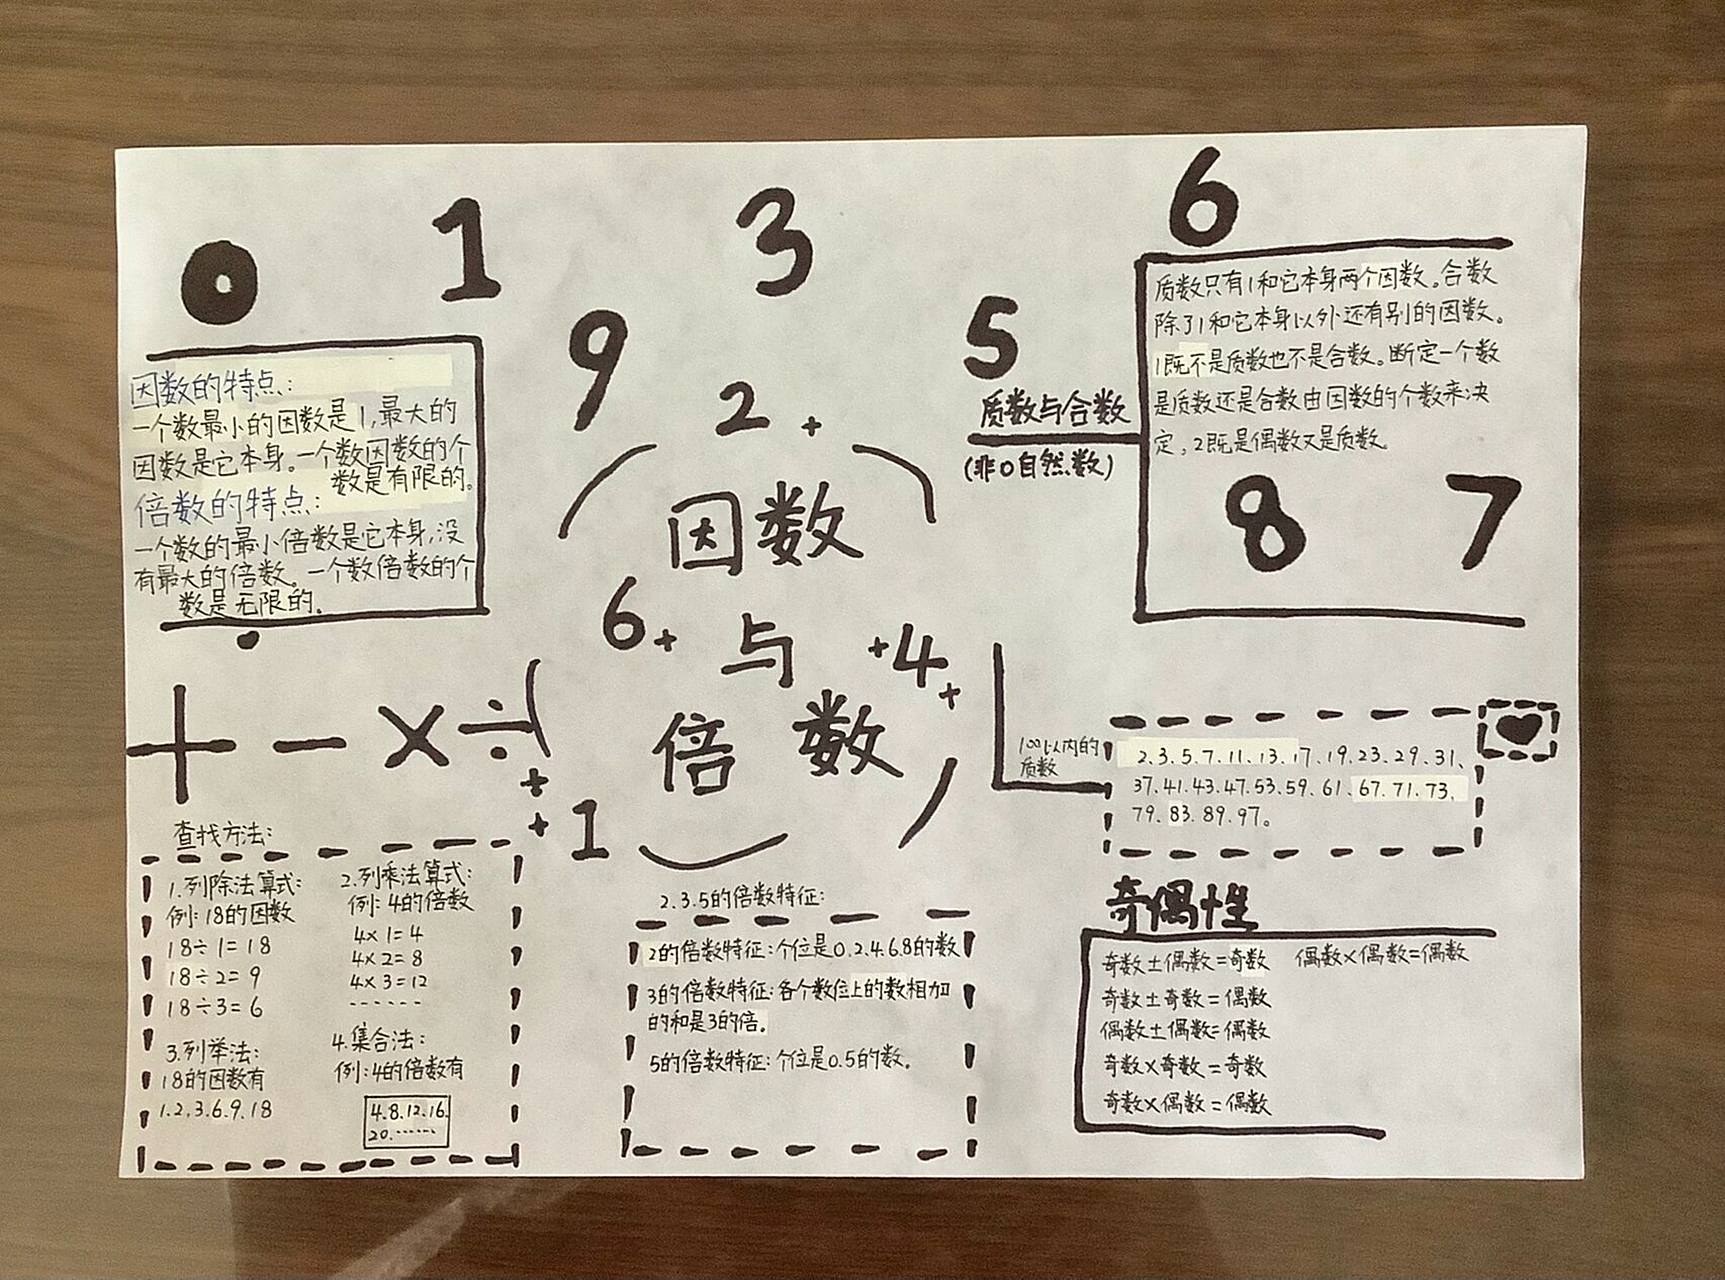 0
1
3
6
9
5
2
+
因数的特点:
一个数最小的因数是1,最大的
因数是它本身。一个数因数的个
数是有限的。
倍数的特点:
一个数的最小倍数是它本身,没
有最大的倍数。一个数倍数的个
数是无限的。
因数
6+
与
+4
+
倍数
质数与合数
(非0自然数)
质数只有1和它本身两个因数。合数
除了1和它本身以外还有别的因数。
1既不是质数也不是合数。断定一个数
是质数还是合数由因数的个数来决
定,2既是偶数又是质数。
8 7
+ − × ÷
+
+1
查找方法:
1.列除法算式:
例:18的因数
18÷1=18
18÷2=9
18÷3=6
2.列乘法算式:
例:4的倍数
4×1=4
4×2=8
4×3=12
------
3.列举法:
18的因数有
1.2.3.6.9.18
4.集合法:
例:4的倍数有
4.8.12.16.
20.------
2.3.5的倍数特征:
2的倍数特征:个位是0.2.4.6.8的数
3的倍数特征:各个数位上的数相加
的和是3的倍。
5的倍数特征:个位是0.5的数。
100以内的
质数
2、3、5、7、11、13、17、19、23、29、31、
37、41、43、47、53、59、61、67、71、73、
79、83、89、97。
奇偶性
奇数±偶数=奇数 偶数×偶数=偶数
奇数±奇数=偶数
偶数±偶数=偶数
奇数×奇数=奇数
奇数×偶数=偶数